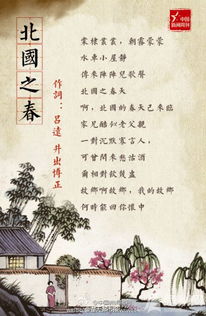 中国
新闻周刊
北國之春
作詞：呂遠 井出博正
棠棣叢叢，朝霧蒙蒙
水車小屋靜
傳來陣陣兒歌聲
北國之春天
啊，北國的春天已來臨
家兄酷似老父親
一對沉默寡言人
可曾閒來愁沽酒
偶相對飲幾盅
故鄉啊故鄉，我的故鄉
何時能回你懷中